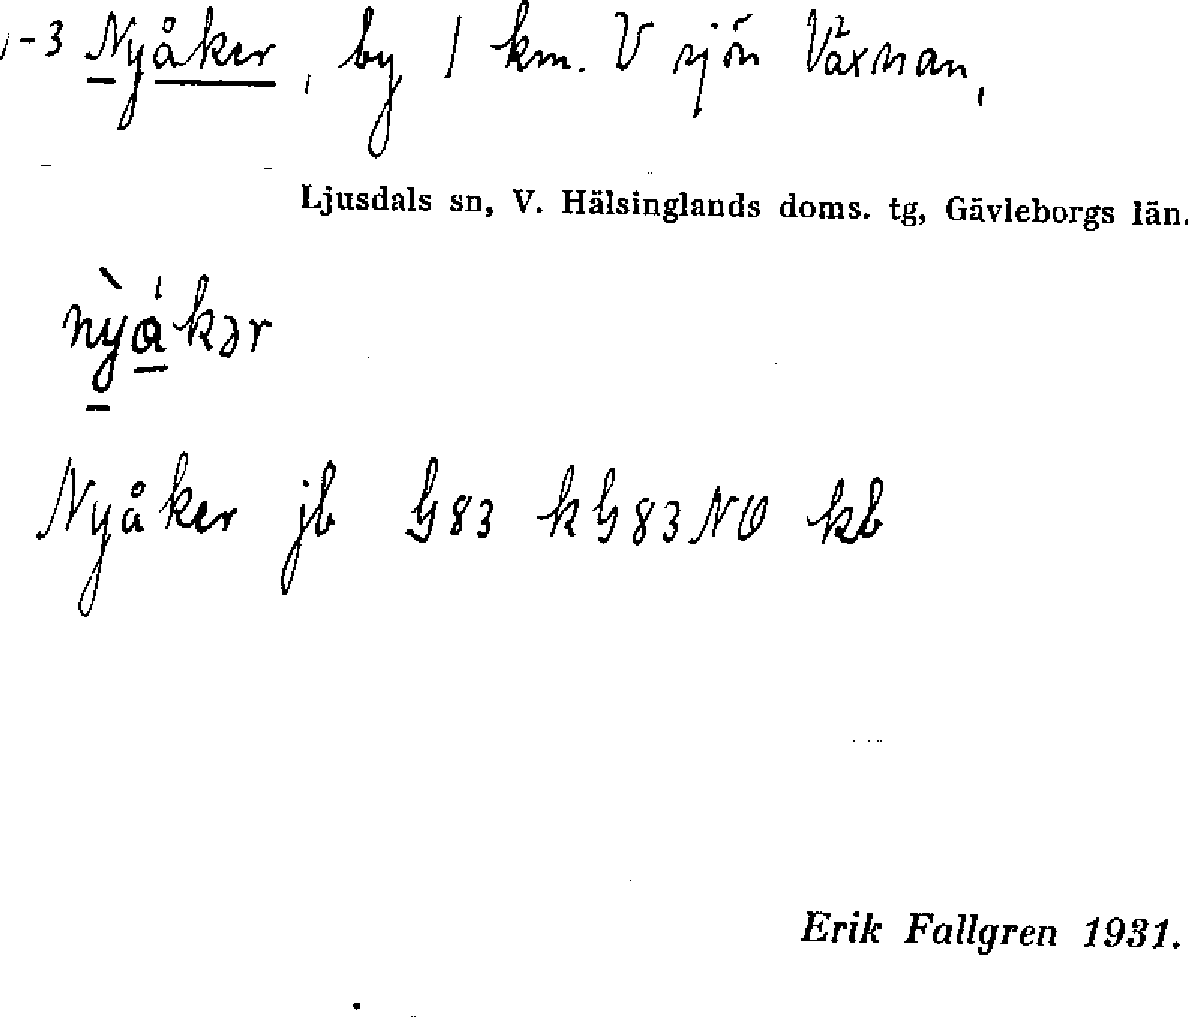 -3 Nyåker, by 1 km. V sjön Växnan,
Ljusdals sn, V. Hälsinglands doms. tg, Gävleborgs län.
nỳa̍kər
Nyåker jb G83 kG83NO kb
Erik Fallgren 1931.